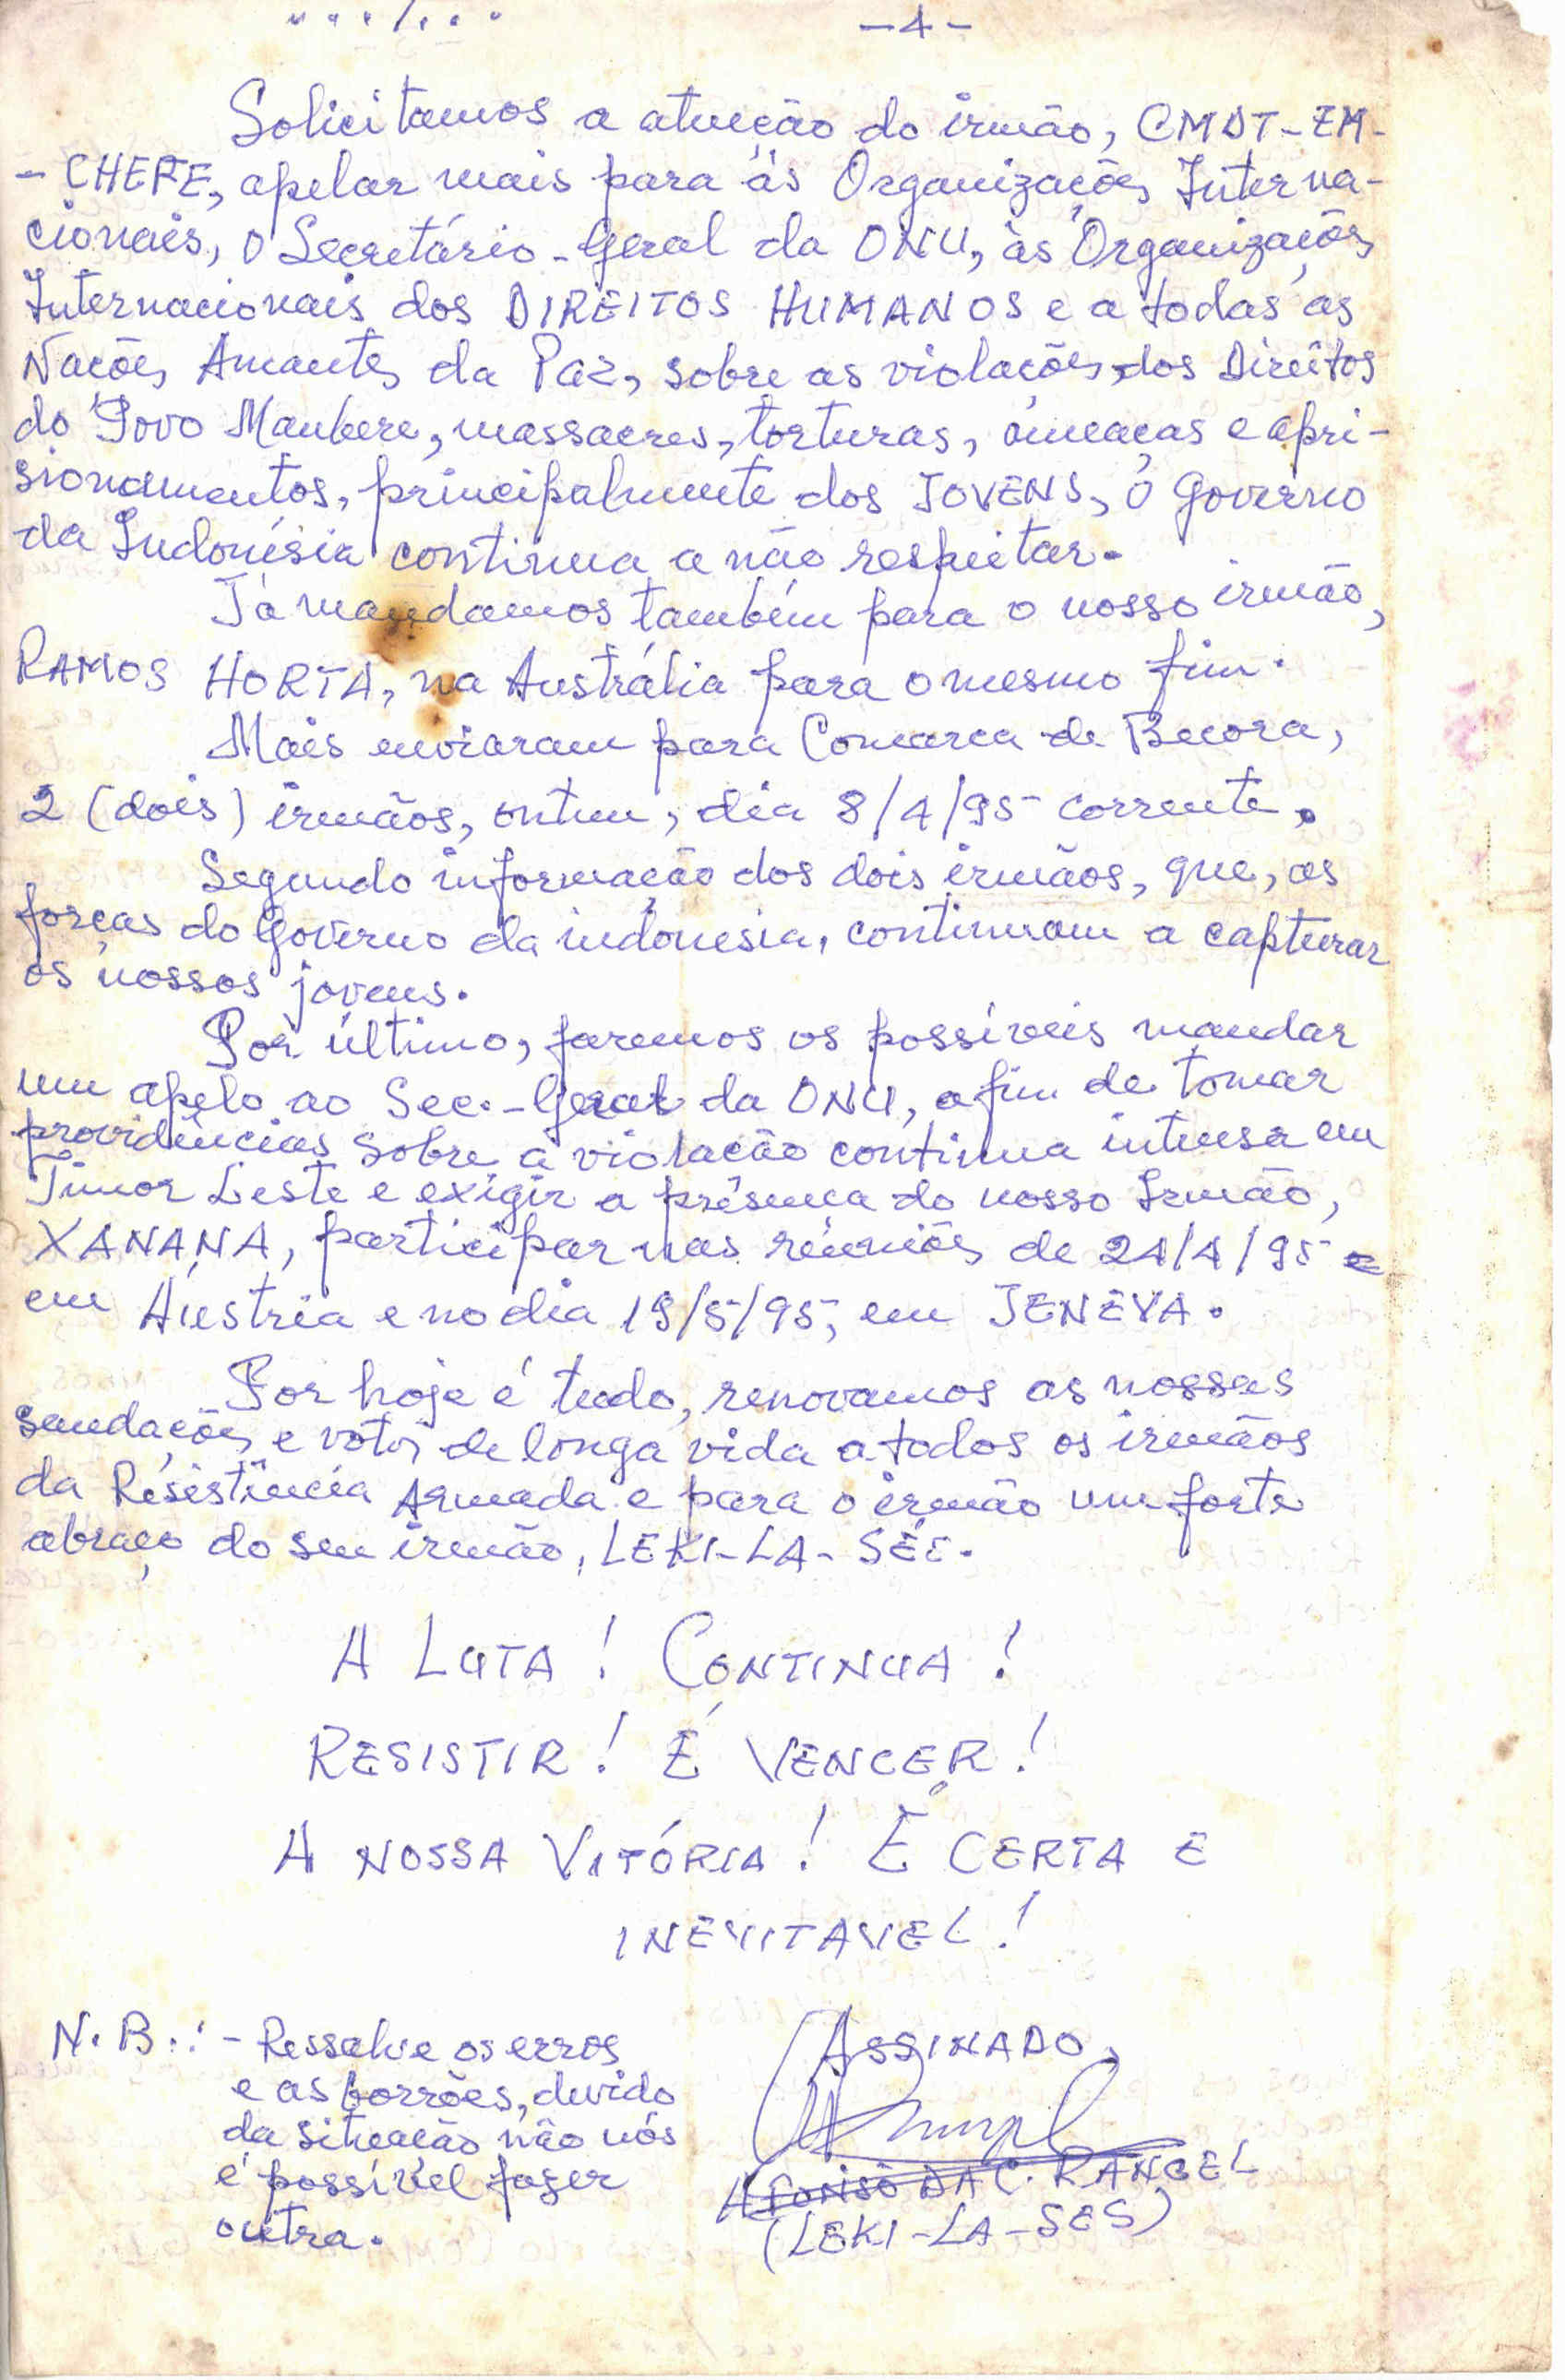 .../... -4-
Solicitamos a atuação do irmão, CMDT-EM-
- CHEFE, apelar mais para às Organizações Interna-
cionais, o Secretário-Geral da ONU, às Organizações
Internacionais dos DIREITOS HUMANOS e a todas as
Nações Amantes da Paz, sobre as violações dos Direitos
do Povo Maubere, massacres, torturas, ameaças e apri-
sionamentos, principalmente dos JOVENS, o Governo
da Indonésia continua a não respeitar.
Já mandamos também para o nosso irmão,
RAMOS HORTA, na Austrália para o mesmo fim.
Mais enviaram para Comarca de Becora,
2 (dois) irmãos, ontem, dia 8/4/95 corrente.
Segundo informação dos dois irmãos, que, as
forças do Governo da indonesia, continuam a capturar
os nossos jovens.
Por último, faremos os possíveis mandar
um apelo ao Sec.-Geral da ONU, a fim de tomar
providências sobre a violação continua intensa em
Timor Leste e exigir a présença do nosso Irmão,
XANANA, participar nas réuniões de 24/4/95
em Áustria e no dia 19/5/95, em JENÈVA.
Por hoje é tudo, renovamos as nossas
saudações e votos de longa vida a todos os irmãos
da Résistência Armada e para o irmão um forte
abraço do seu irmão, LEKI-LA-SÉS.
A LUTA! CONTINUA!
RESISTIR! É VENCER!
A NOSSA VITÓRIA! É CERTA E
INEVITAVEL!
N.B.: - Ressalve os erros
e as borrões, devido
da situação não nós
é possível fazer
outra.
ASSINADO,
AFONSO DA C. RANGEL
(LEKI-LA-SES)